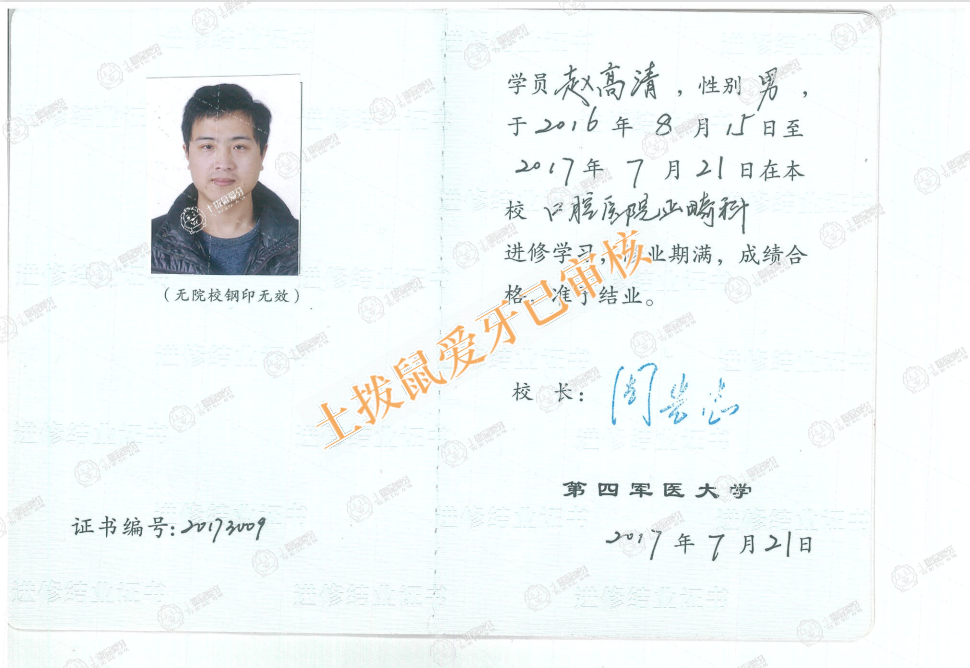 学员赵高清，性别男，
于2016年8月15日至
2017年7月21日在本
校口腔医院正畸科
进修学习，业期满，成绩合
格，准予结业。
（无院校钢印无效）
土拨鼠爱牙已审核
土拨鼠爱牙
校 长：
第四军医大学
证书编号：20173009
2017年7月21日
进修结业证书